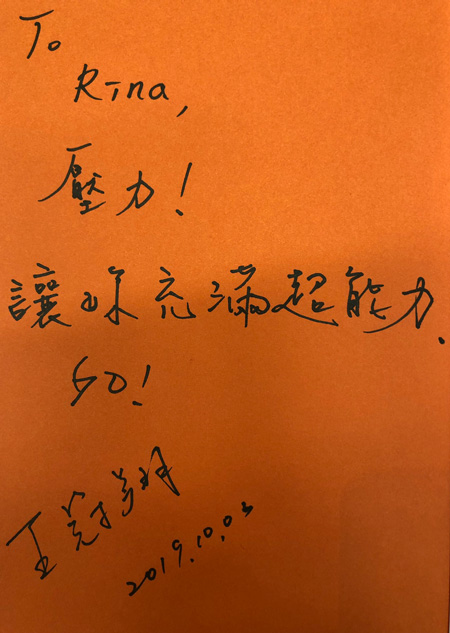 To
Rina,
壓力!
讓妳充滿超能力.
GO!
王冠翔
2019.10.03